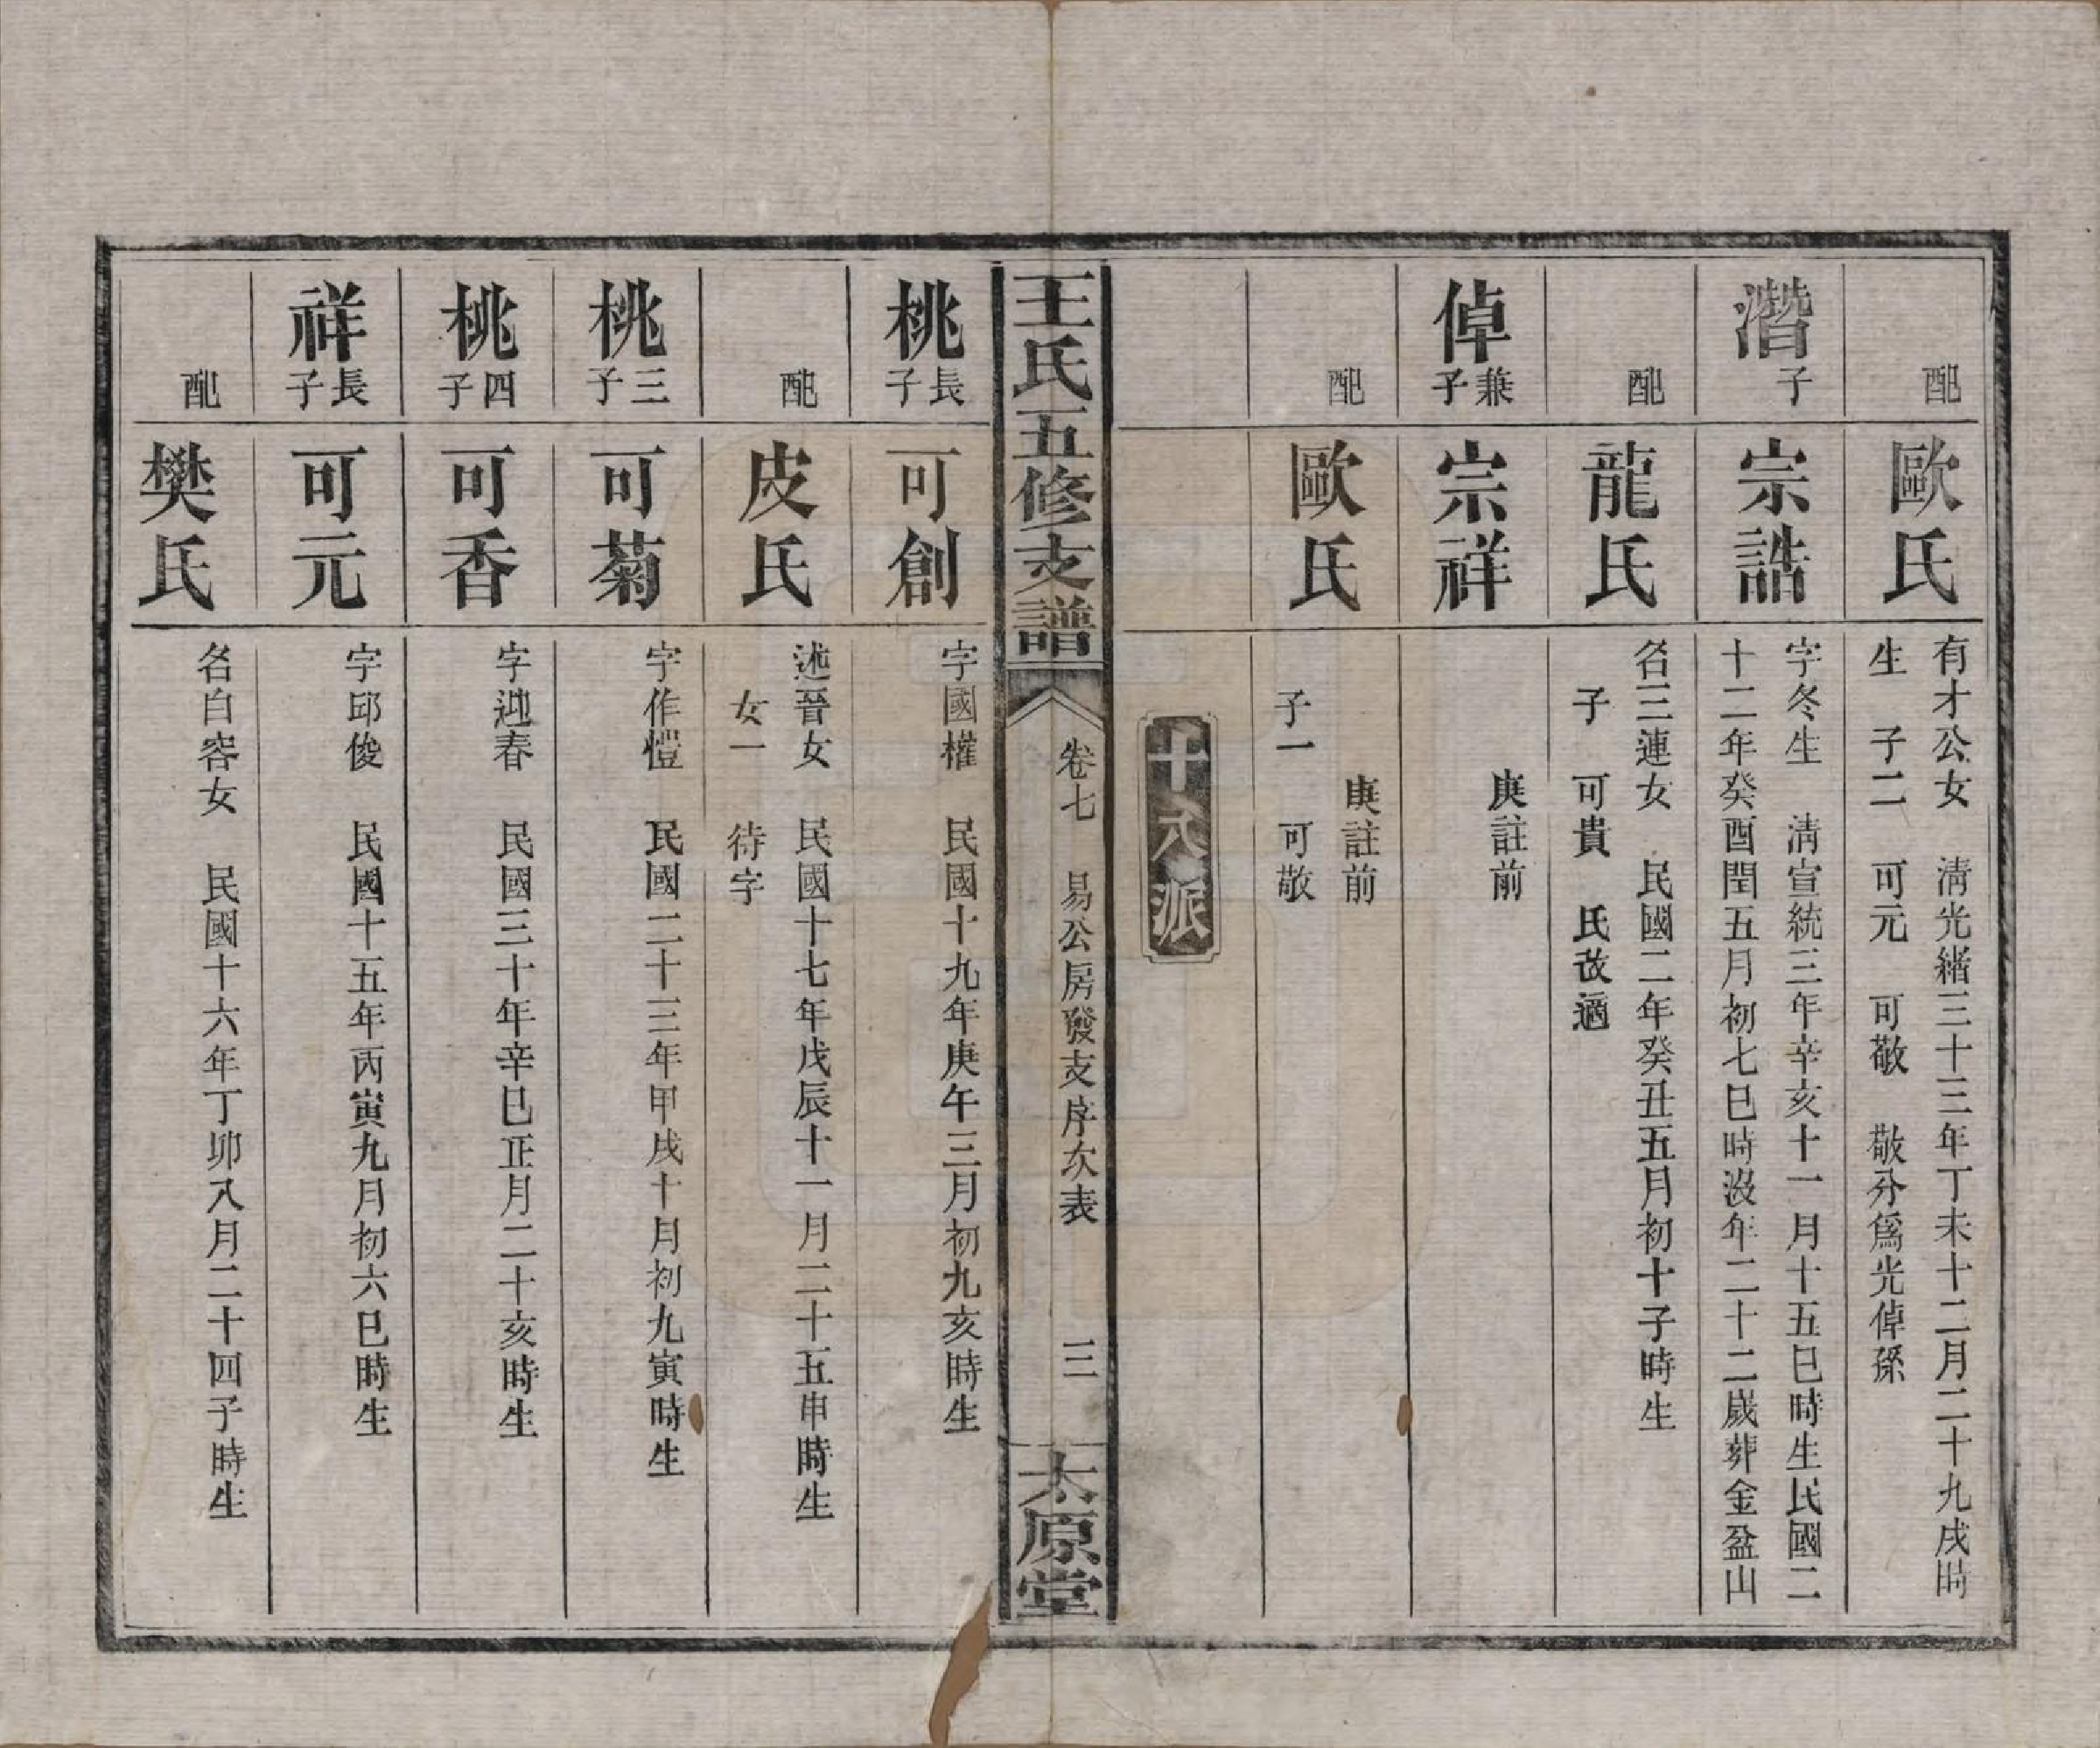 配
歐氏
有才公女　淸光緖三十三年丁未十二月二十九戌時
生　子二　可元　可敬　敬分爲光倬孫
潛子
宗誥
字冬生　淸宣統三年辛亥十一月十五巳時生民國二
十二年癸酉閏五月初七巳時沒年二十二歲葬金盆山
配
龍氏
名三連女　民國二年癸丑五月初十子時生
子　可貴　氏改適
倬兼子
宗祥
庚註前
配
歐氏
庚註前
子一　可敬
十八派
王氏五修支譜
卷七　易公房發支序次表　三
太原堂
桃長子
可創
字國權　民國十九年庚午三月初九亥時生
配
皮氏
述晉女　民國十七年戊辰十一月二十五申時生
女一　待字
桃三子
可菊
字作愷　民國二十三年甲戌十月初九寅時生
桃四子
可香
字迎春　民國三十年辛巳正月二十亥時生
祥長子
可元
字邱俊　民國十五年丙寅九月初六巳時生
配
樊氏
名自容女　民國十六年丁卯八月二十四子時生